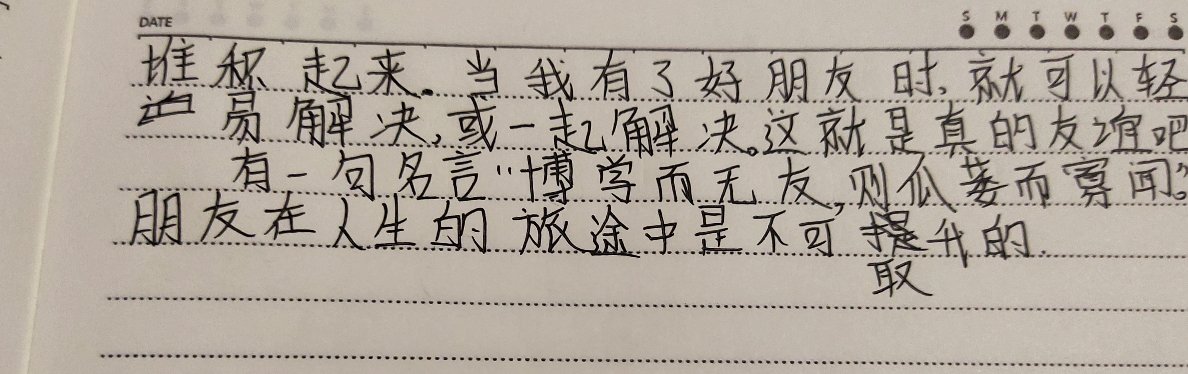 DATE S M T W T F S
堆积起来。当我有了好朋友时,就可以轻
易解决,或一起解决。这就是真的友谊吧
有一句名言“博学而无友,则瓜蒌而寡闻。”
朋友在人生的旅途中是不可提升的.
取